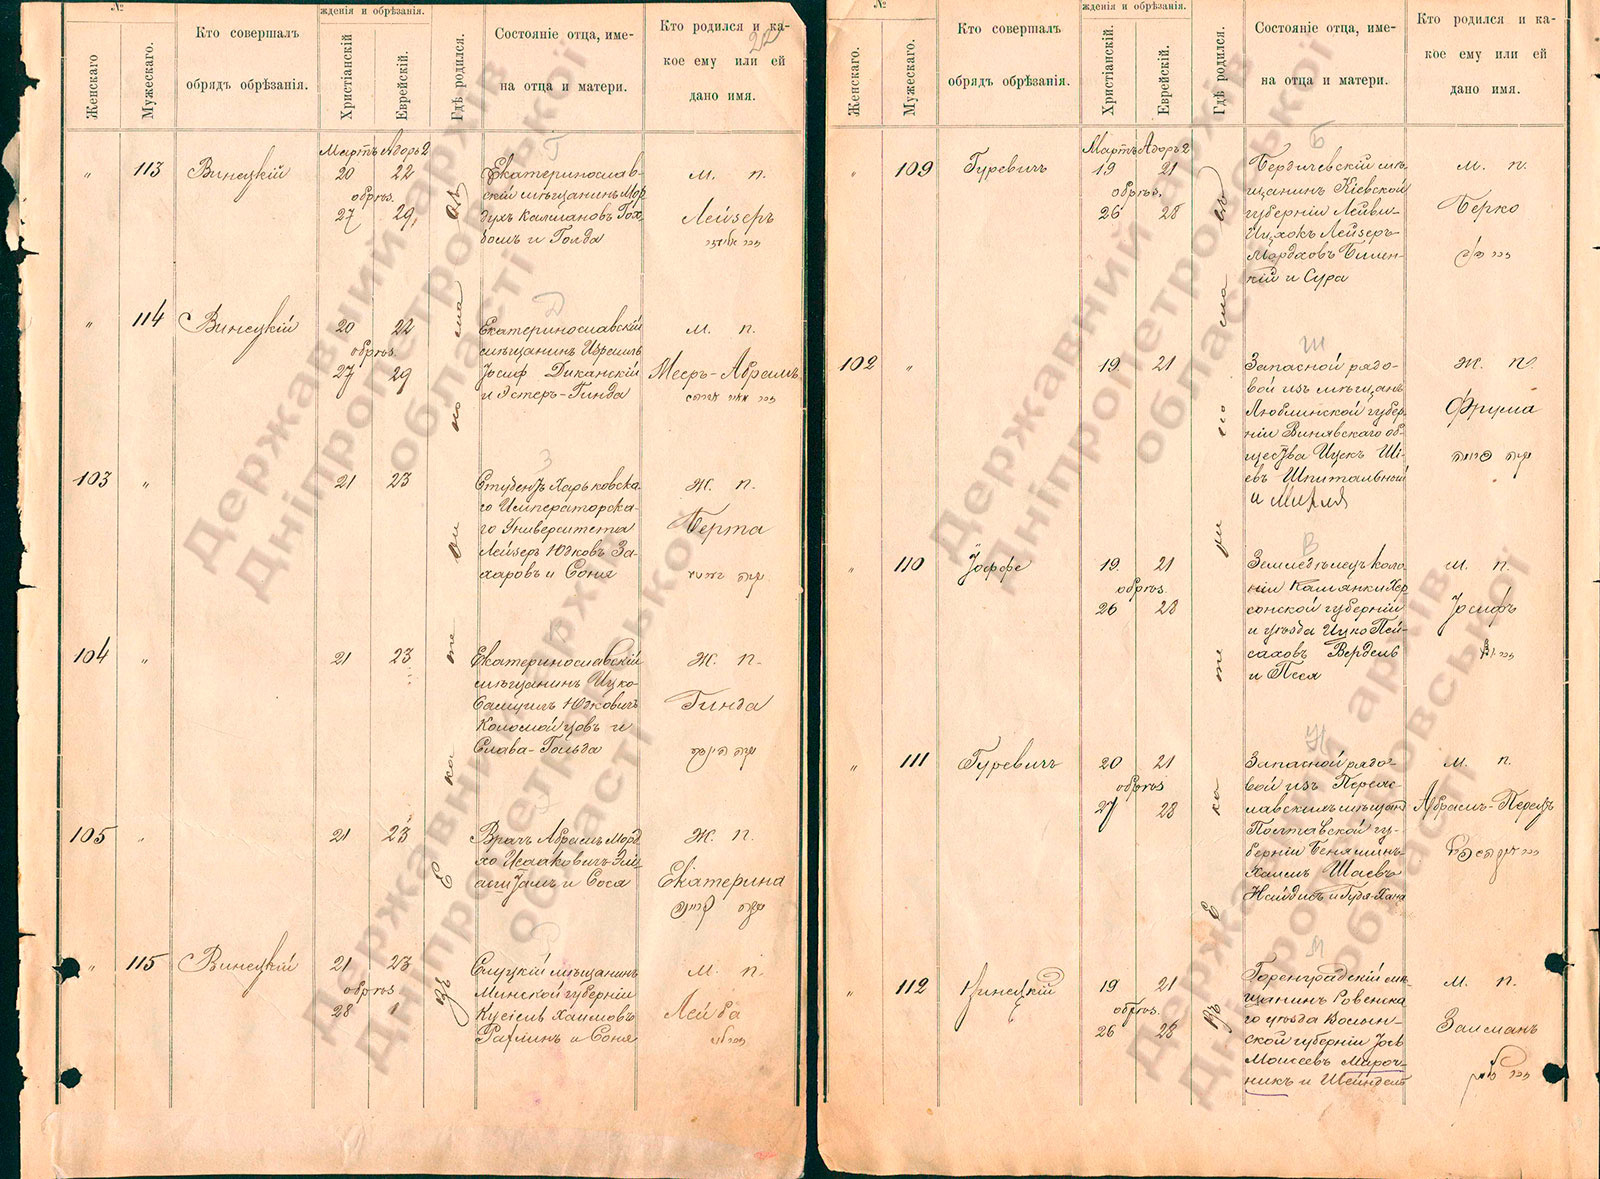 №
Женскаго
Мужескаго.
Кто совершалъ
обрядъ обрѣзанія.
жденія и обрѣзанія.
Христіанскій
Еврейскій.
Гдѣ родился.
Состояніе отца, име-
на отца и матери.
Кто родился и ка-
кое ему или ей
дано имя.
22
Мартъ Адоръ 2
" 113 Винецкій 20 22
обрѣз.
27 29
Екатеринослав-
скій мѣщанинъ Мор
духъ Калмановъ Гох
бомъ и Голда
м. п.
Лейзеръ
" 114 Винецкій 20 22
обрѣз.
27 29
Екатеринославскій
мѣщанинъ Израиль
Іосиф Диканскій
и Эстеръ-Гинда
м. п.
Мееръ-Абрамъ
103 " 21 23
Студентъ Харьковска-
го Императорска-
го Университета
Лейзеръ Юдковъ За-
харовъ и Соня
Ж. п.
Берта
104 " 21 23
Екатеринославскій
мѣщанинъ Ицко-
Самуилъ Юдковичъ
Коломойцовъ и
Слава-Гольда
Ж. п.
Гинда
105 " 21 23
Врачъ Абрамъ Морд
хо Исааковичъ
и Сося
Ж. п.
Екатерина
" 115 Винецкій 21 23
обрѣз
28 1
Слуцкій мѣщанинъ
Минской губерніи
Кусіель Хаимовъ
Рахлинъ и Соня
м. п.
Лейба
Екатеринославъ
№
Женскаго
Мужескаго.
Кто совершалъ
обрядъ обрѣзанія.
жденія и обрѣзанія.
Христіанскій
Еврейскій.
Гдѣ родился.
Состояніе отца, име-
на отца и матери.
Кто родился и ка-
кое ему или ей
дано имя.
Мартъ Адоръ 2
" 109 Гуревичъ 19 21
обрѣз.
26 28
Бердичевскій мѣ-
щанинъ Кіевской
губерніи Лейви-
Ицхокъ Лейзеръ-
Мордховъ Билин-
кій и Сура
м. п.
Берко
102 " 19 21
Запасной рядо-
вой изъ мѣщанъ
Люблинской губер
ніи Винявскаго об-
щества Ицекъ Ші-
евъ Шпитальной
и Мирля
Ж. п.
Фрума
" 110 Іоффе 19 21
обрѣз.
26 28
Земледѣлецъ коло-
ніи Камянки Хер
сонской губерніи
и уѣзда Ицко Пей-
саховъ Вердель
и Песя
м. п.
Іосифъ
" 111 Гуревичъ 20 21
обрѣз
27 28
Запасной рядо-
вой изъ Переяс-
лавскихъ мѣщанъ
Полтавской гу-
берніи Беняминъ-
Хаимъ Шаевъ
Найдисъ и Гудя-Хана
м. п.
Абрамъ-Перецъ
" 112 Винецкій 19 21
обрѣз.
26 28
мѣ-
щанинъ Ровенска
го уѣзда Волын-
ской губерніи Іось
Моисеевъ Мароч-
никъ и Шейндель
м. п.
Залманъ
Екатеринославъ
Державний архів
Дніпропетровської
області
Державний архів
Дніпропетровської
області
Державний архів
Дніпропетровської
області
Державний архів
Дніпропетровської
області